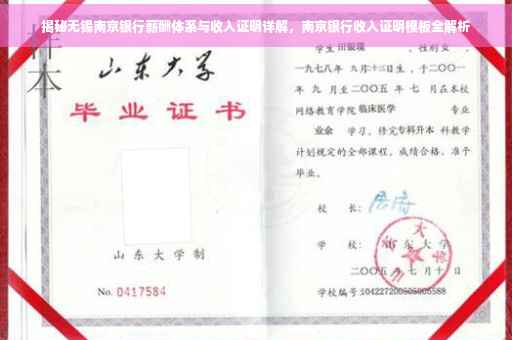 揭秘无锡南京银行薪酬体系与收入证明详解，南京银行收入证明模板全解析
样
本
山东大学
毕业证书
山东大学制
No. 0417584
学生 田银瑞 ，性别女，
一九七八年 九月十二日生，于二〇〇一
年 九 月至二〇〇五 年 七 月在本校
网络教育学院 临床医学 专业
业余 学习，修完 专科升本 科教学
计划规定的全部课程，成绩合格，准予
毕业。
校 长：
学 校： 山东大学
二〇〇五 年 七 月 十 日
学校编号: